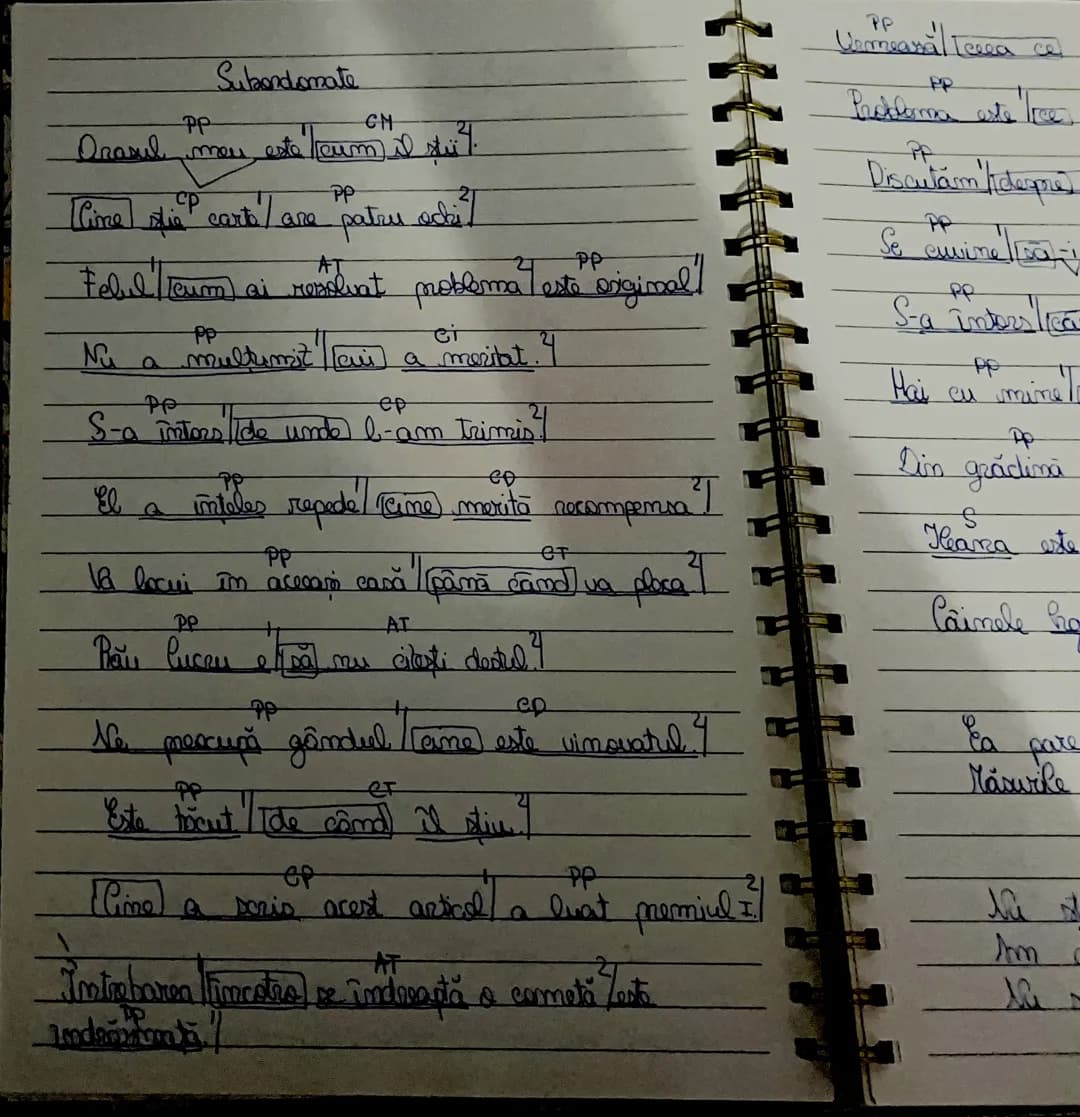 Subordonate
PP CM
Orasul meu este 1/ cum îl știi 2/.
CP PP
Cine știe carte 1/ are patru ochi 2/
AT PP
Felul 1/ cum ai rezolvat problema 2/ este original 1/
PP Ci
Nu a mulțumit 1/ cui a meritat. 2/
PP CP
S-a întors 1/ de unde l-am trimis. 2/
PP CD
El a înteles repede 1/ cine merită recompensa 2/
PP CT
Va locui în aceeași casă 1/ până când va pleca 2/
PP AT
Rău lucru e 1/ să nu citești destul. 2/
PP CD
Ne preocupă gândul 1/ cine este vinovatul. 2/
PP CT
Este tăcut 1/ de când îl știu. 2/
CP PP
Cine a scris acest articol 1/ a luat premiul I. 2/
AT
Întrebarea 1/ încotro se îndreaptă o cometă 2/ este
PP
îndreptată. 1/
PP
Urmează 1/ ceea ce
PP
Problema este 1/ ce
PP
Discutăm 1/ despre
PP
Se cuvine 1/ să-i
PP
S-a întors 1/ că
PP
Hai cu mine 1/
PP
Din grădină
S
Ileana este
Câinele
Ea pare
Măsurile
Nu
Am
Nu